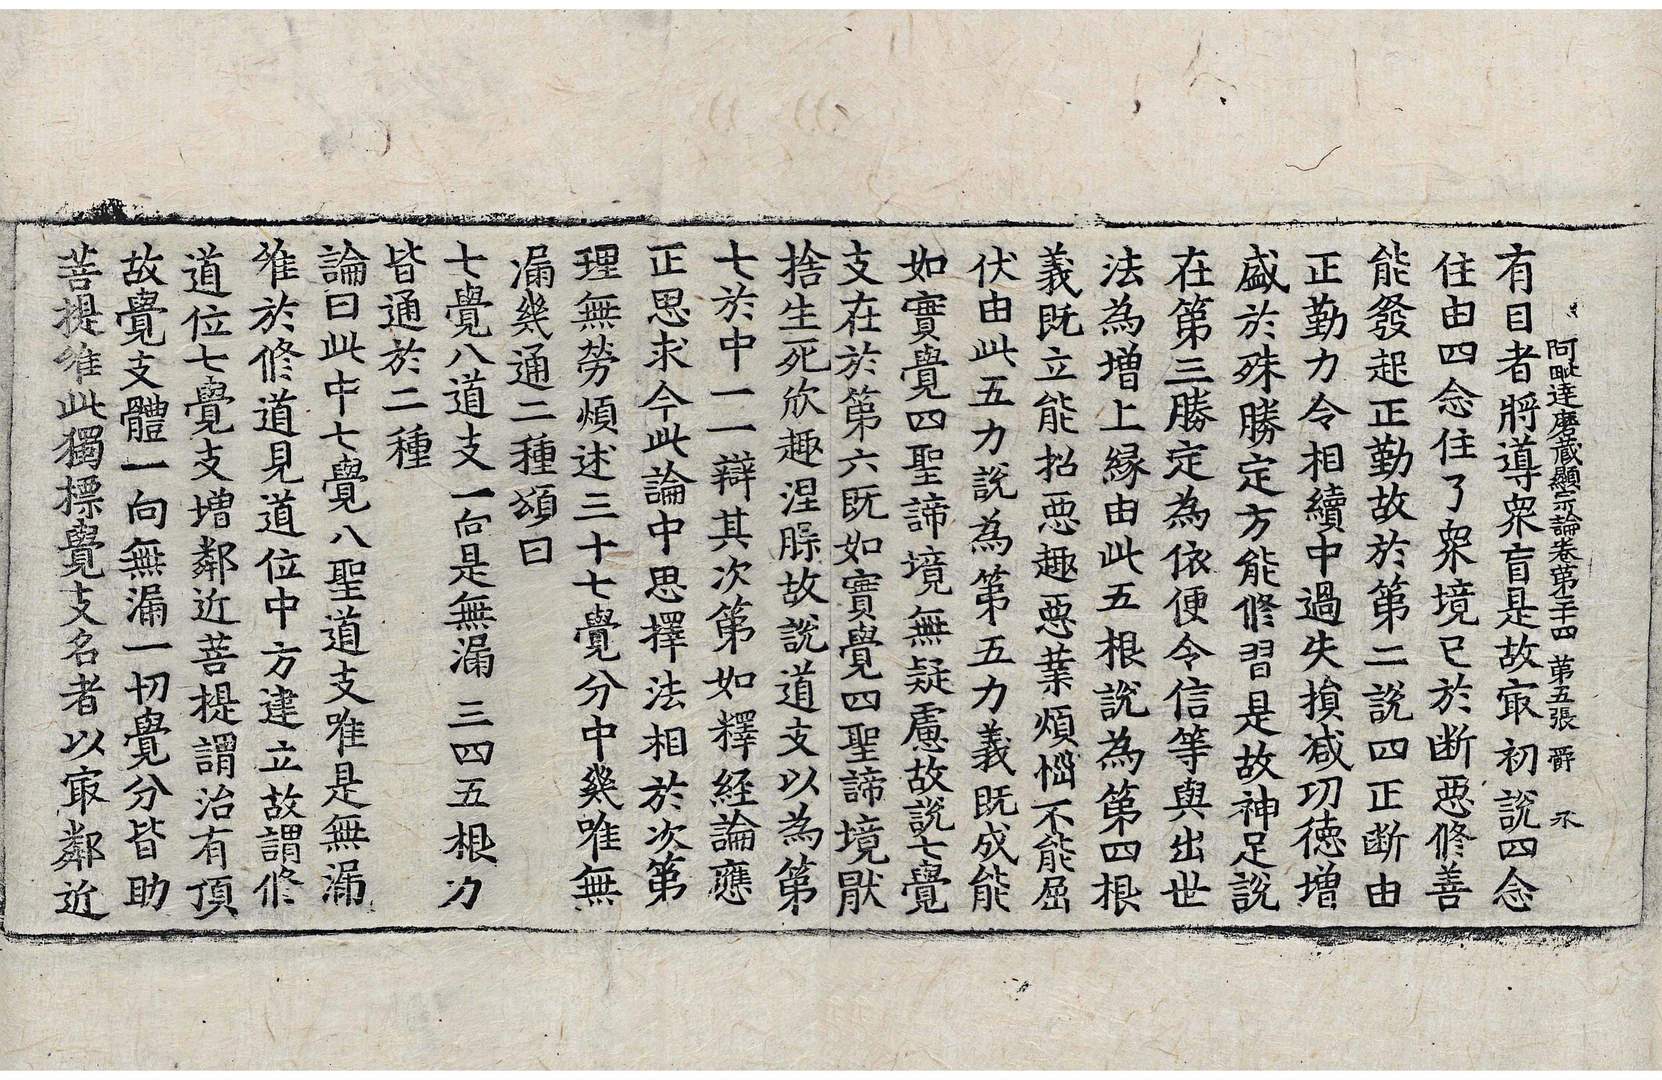 阿毗達磨蔵顯宗論卷第三十四 第五張 爵
有目者將導衆盲是故冣初說四念
住由四念住了衆境已於断惡修善
能發起正勤故於第二說四正断由
正勤力令相續中過失損减功徳増
盛於殊勝定方能修習是故神足說
在第三勝定為依便令信等與出世
法為增上縁由此五根說為第四根
義既立能招惡趣惡業煩惱不能屈
伏由此五力說為第五力義既成能
如實覺四聖諦境無疑慮故說七覺
支在於第六既如實覺四聖諦境猒
捨生死欣趣涅槃故說道支以為第
七於中一一辯其次第如釋経論應
正思求今此論中思擇法相於次第
理無勞煩述三十七覺分中幾唯無
漏幾通二種頌曰
七覺八道支 一向是無漏 三四五根力
皆通於二種
論曰此中七覺八聖道支唯是無漏
唯於修道見道位中方建立故謂修
道位七覺支增鄰近菩提謂治有頂
故覺支體一向無漏一切覺分皆助
菩提唯此獨標覺支名者以冣鄰近